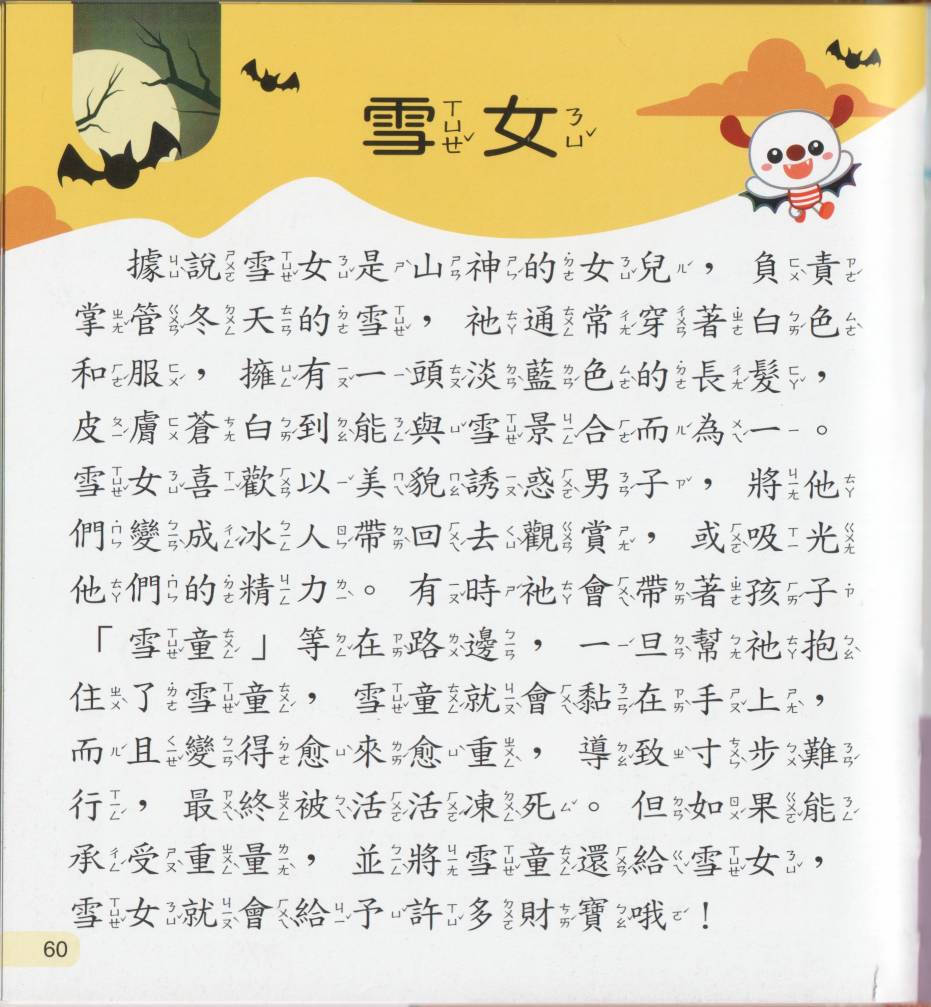 雪女
據說雪女是山神的女兒，負責
掌管冬天的雪，祂通常穿著白色
和服，擁有一頭淡藍色的長髮，
皮膚蒼白到能與雪景合而為一。
雪女喜歡以美貌誘惑男子，將他
們變成冰人帶回去觀賞，或吸光
他們的精力。有時祂會帶著孩子
「雪童」等在路邊，一旦幫祂抱
住了雪童，雪童就會黏在手上，
而且變得愈來愈重，導致寸步難
行，最終被活活凍死。但如果能
承受重量，並將雪童還給雪女，
雪女就會給予許多財寶哦！
60